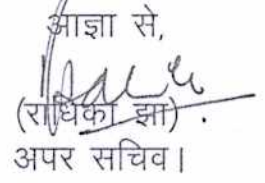 आज्ञा से,
(राधिका झा) .
अपर सचिव।